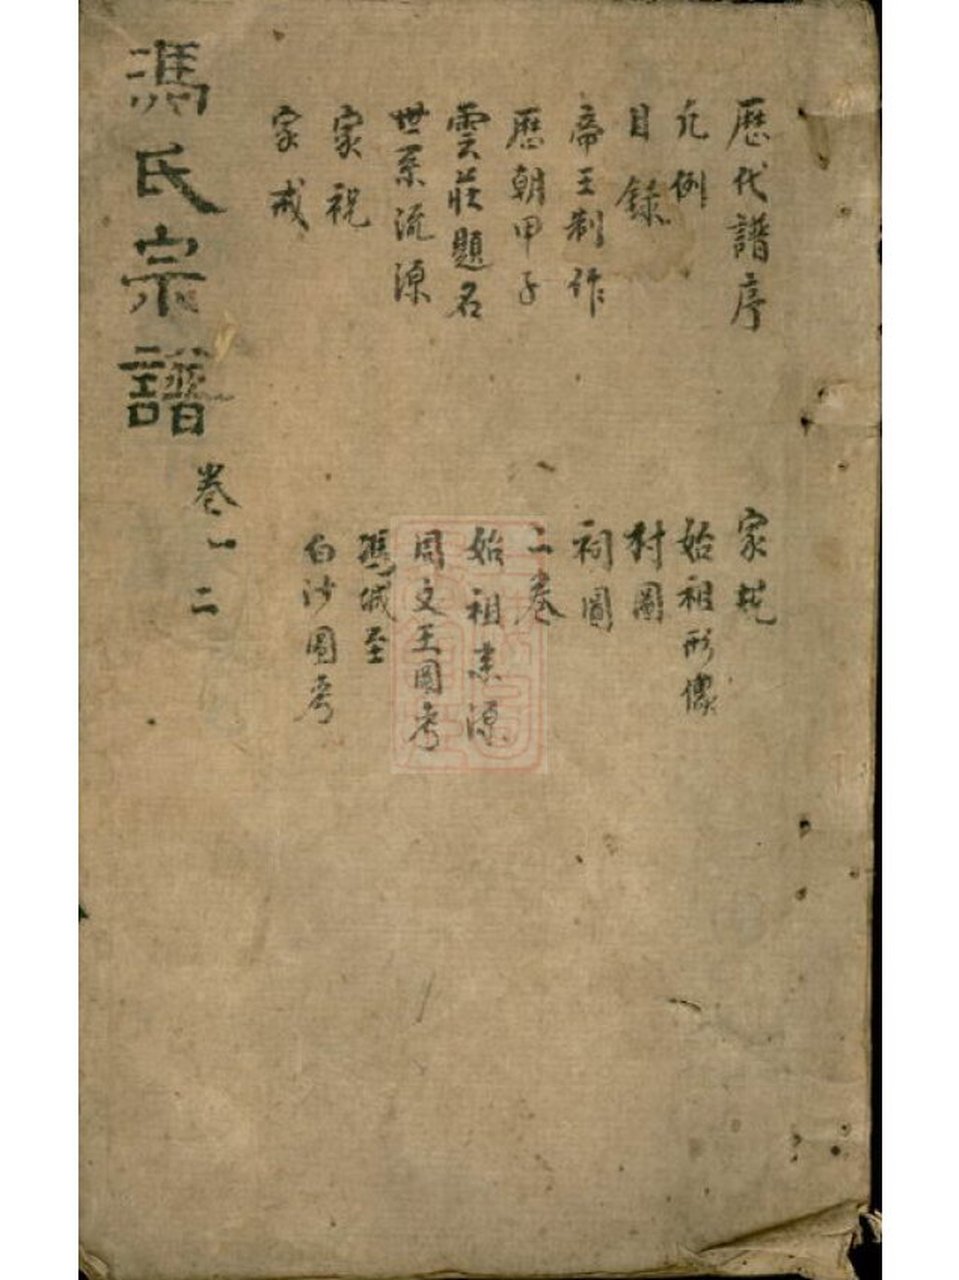 歷代譜序
凡例
目錄
帝王制作
歷朝甲子
雲莊題名
世系流源
家祝
家戒
家규
始祖形像
村圖
祠圖
二卷
始祖来源
周文王圖考
馮城至
白沙圖考
馮氏宗譜
卷一
二